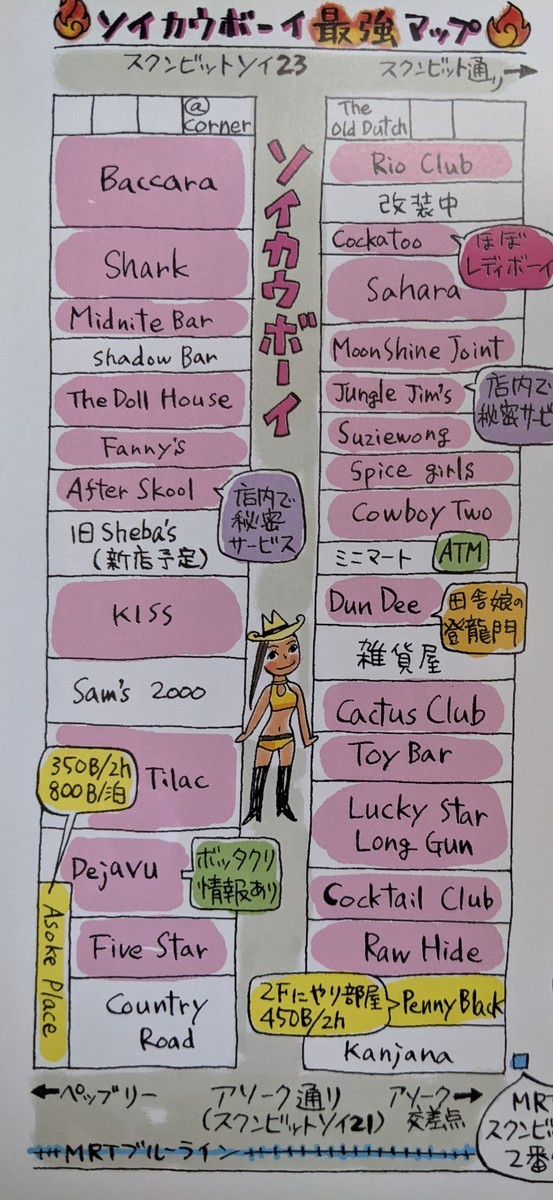 ソイカウボーイ最強マップ
スクンビットソイ23
スクンビット通り→
@
corner
Baccara
Shark
Midnite Bar
shadow Bar
The Doll House
Fanny's
After Skool
店内で
秘密
サービス
旧Sheba's
(新店予定)
KISS
Sam's 2000
Tilac
350B/2h
800B/泊
Dejavu
ボッタクリ
情報あり
Asoke Place
Five Star
Country
Road
ソイカウボーイ
The
Old Dutch
Rio Club
改装中
Cockatoo
ほぼ
レディボーイ
Sahara
Moonshine Joint
Jungle Jim's
店内で
秘密サービ
Suziewong
Spice girls
Cowboy Two
ミニマート
ATM
Dun Dee
田舎娘の
登龍門
雑貨屋
Cactus Club
Toy Bar
Lucky Star
Long Gun
Cocktail Club
Raw Hide
2Fにやり部屋
450B/2h
Penny Black
Kanjana
←ペッブリー
アソーク通り
(スクンビットソイ21)
アソーク→
交差点
MRT
スクンビ
2番
MRTブルーライン